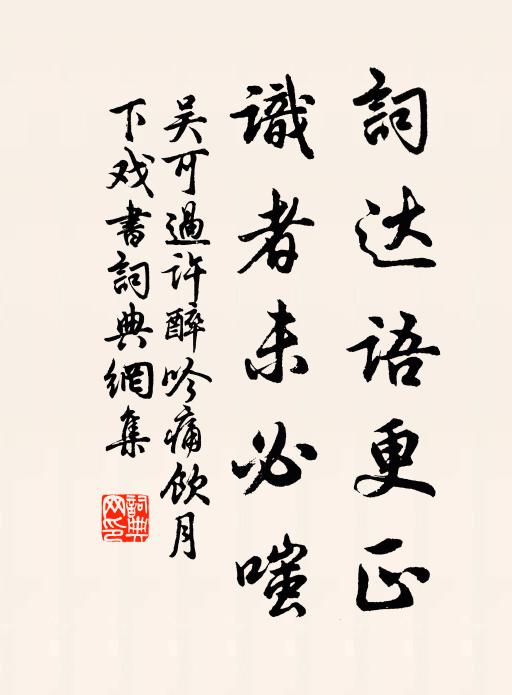 詞达语更正
識者未必嗤
吴可過许醉吟痛飲月
下戏書詞典網集
詞典
网印